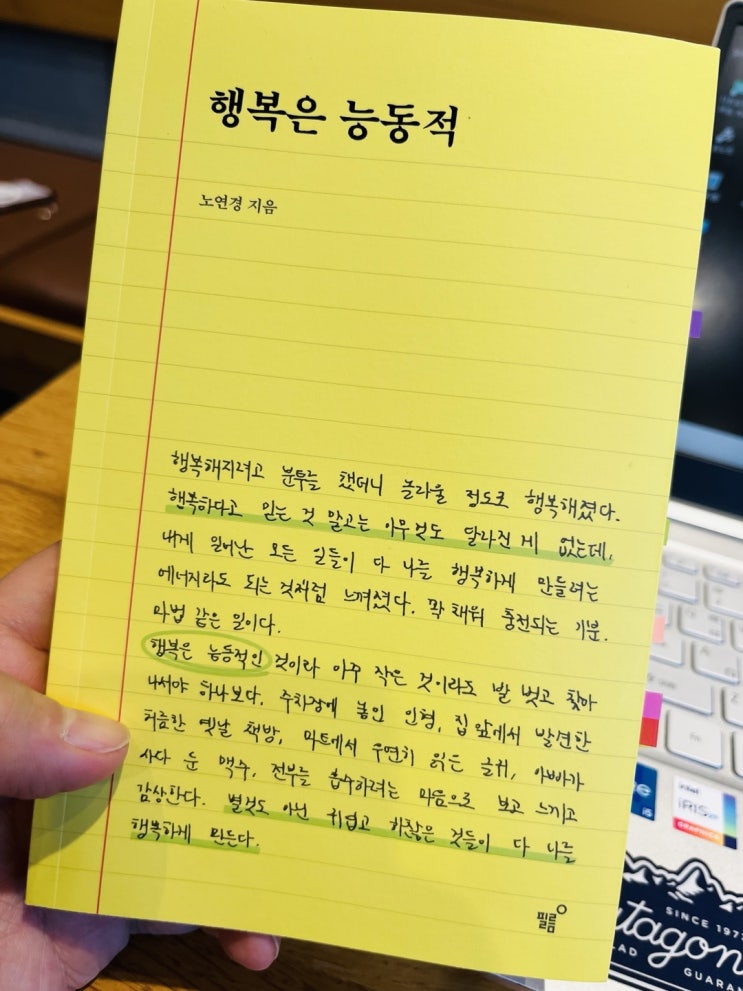 행복은 능동적
노연경 지음
행복해지려고 분투를 했더니 놀라울 정도로 행복해졌다.
행복하다고 믿는 것 말고는 아무것도 달라진 게 없는데,
내게 일어난 모든 일들이 다 나를 행복하게 만들려는
에너지라도 되는 것처럼 느껴졌다. 꽉 채워 충전되는 기분.
마법 같은 일이다.
행복은 능동적인 것이라 아주 작은 것이라도 발 벗고 찾아
나서야 하나보다. 주차장에 놓인 인형, 집 앞에서 발견한
허름한 옛날 책방, 마트에서 우연히 읽은 글귀, 아빠가
사다 둔 맥주, 전부를 흡수하려는 마음으로 보고 느끼고
감상한다. 별것도 아닌 귀엽고 하찮은 것들이 다 나를
행복하게 만든다.
필름
intel
iRIS xe
GRAPHICS
i5
SINCE 1973
GUARAN